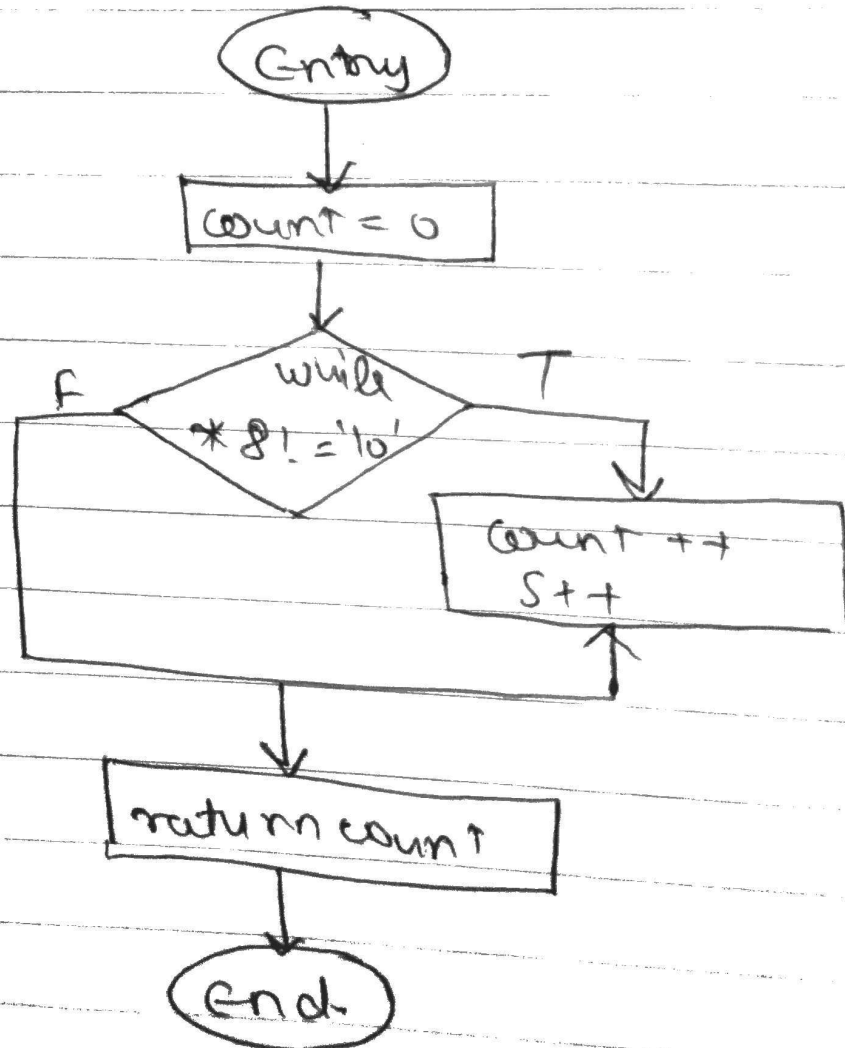 Entry
count = 0
while
F
T
*s! = '\0'
count ++
S++
return count
End